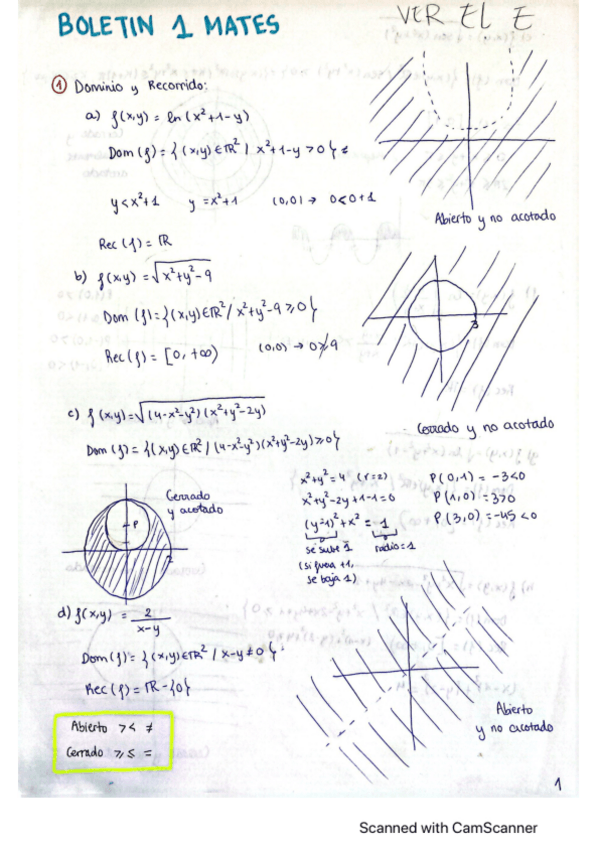 BOLETIN 1 MATES
VER EL E
① Dominio y Recorrido:
a) f(x,y) = ln (x²+1-y)
Dom (f) = { (x,y) ∈ ℝ² / x²+1-y > 0 }
y < x²+1 y = x²+1 (0,0) → 0<0+1
Abierto y no acotado
Rec (f) = ℝ
b) f(x,y) = √x²+y²-9
Dom (f) = {(x,y) ∈ ℝ² / x²+y²-9 ≥ 0}
3
Rec (f) = [0, +∞) (0,0) → 0≱9
Cerrado y no acotado
c) f(x,y) = √(4-x²-y²)(x²+y²-2y)
Dom (f) = {(x,y) ∈ ℝ² / (4-x²-y²)(x²+y²-2y) ≥ 0}
Cerrado
y acotado
P
2
x²+y² = 4 (r=2)
x²+y²-2y+1-1=0
(y-1)² + x² = 1
se sube 1 radio=1
(si fuera +1,
se baja 1)
P(0,1) = -3<0
P(1,0) = 3>0
P(3,0) = -45<0
d) f(x,y) = 2
x-y
Dom (f) = { (x,y) ∈ ℝ² / x-y ≠ 0 }
Rec (f) = ℝ - {0}
Abierto
y no acotado
Abierto > < ≠
Cerrado ≥ ≤ =
1
Scanned with CamScanner